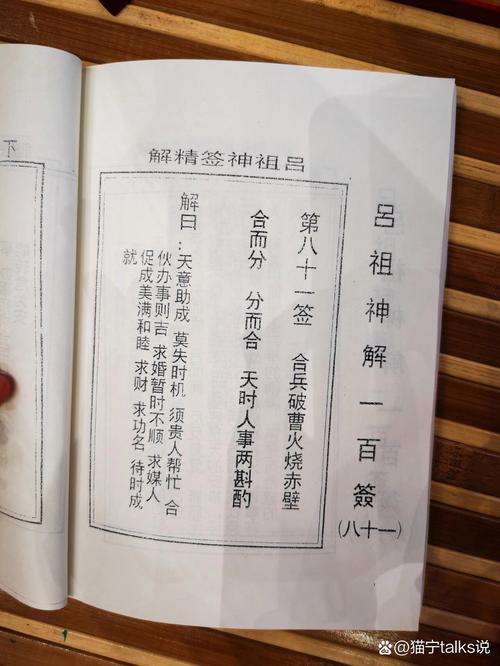 吕祖神解一百簽
(八十一)
吕祖神签精解
第八十一签 合兵破曹火烧赤壁
合而分 分而合 天时人事两斟酌
解曰：天意助成 莫失时机 须贵人帮忙 合
伙办事则吉 求婚暂时不顺 求媒人
促成美满和睦 求财 求功名 待时成
就
@猫宁talks说